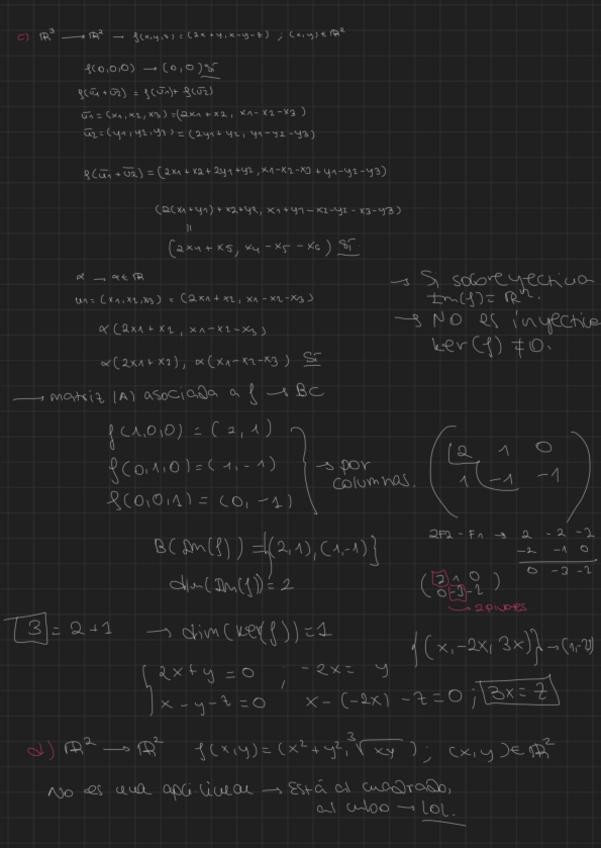 c) ℝ³ → ℝ² → f(x,y,z) = (2x+y, x-y-z) ; (x,y) ∈ ℝ²
f(0,0,0) → (0,0) Sí
f(ū1+ū2) = f(ū1)+f(ū2)
ū1=(x1,x2,x3)=(2x1+x2, x1-x2-x3)
ū2=(y1,y2,y3)=(2y1+y2, y1-y2-y3)
f(ū1+ū2)=(2x1+x2+2y1+y2, x1-x2-x3+y1-y2-y3)
(2(x1+y1)+x2+y2, x1+y1-x2-y2-x3-y3)
=
(2x4+x5, x4-x5-x6) Sí
α → α∈ℝ
u1=(x1,x2,x3)=(2x1+x2, x1-x2-x3)
α(2x1+x2, x1-x2-x3)
α(2x1+x2), α(x1-x2-x3) Sí
→ Si sobreyectiva
Im(f)=ℝⁿ.
→ NO es inyectiva
ker(f)≠0.
→ matriz (A) asociada a f → BC
f(1,0,0)=(2,1)
f(0,1,0)=(1,-1)
f(0,0,1)=(0,-1)
→ por
columnas.
2 1 0
1 -1 -1
B(Im(f))={(2,1),(1,-1)}
dim(Im(f))=2
2F2-F1 → 2 -2 -2
-2 -1 0
0 -3 -2
(2 1 0
0 -3 -2)
→ 2 pivotes
3 = 2+1 → dim(ker(f))=1
{(x,-2x,3x)} → (1,-2,
2x+y=0 ; -2x=y
x-y-z=0 x-(-2x)-z=0 ; 3x=z
d) ℝ² → ℝ² f(x,y)=(x²+y², ∛xy) ; (x,y)∈ℝ²
No es una apli. lineal → Está al cuadrado,
al cubo → LOL.